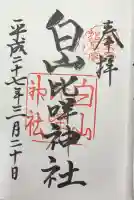 奉拝
白山比咩神社
平成二十七年三月二十日
白山
神社